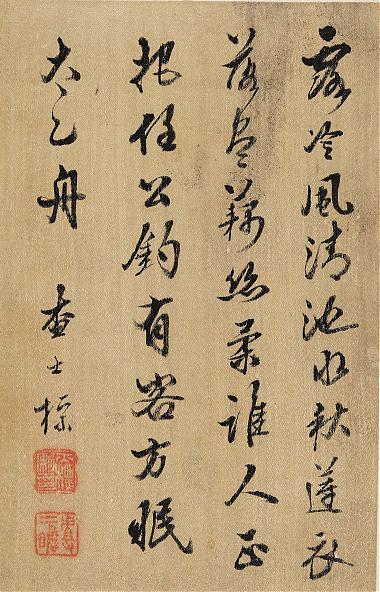 露冷風清池水秋蓮衣
落盡藕絲柔誰人正
把任公釣有客方眠
太乙舟
查士標